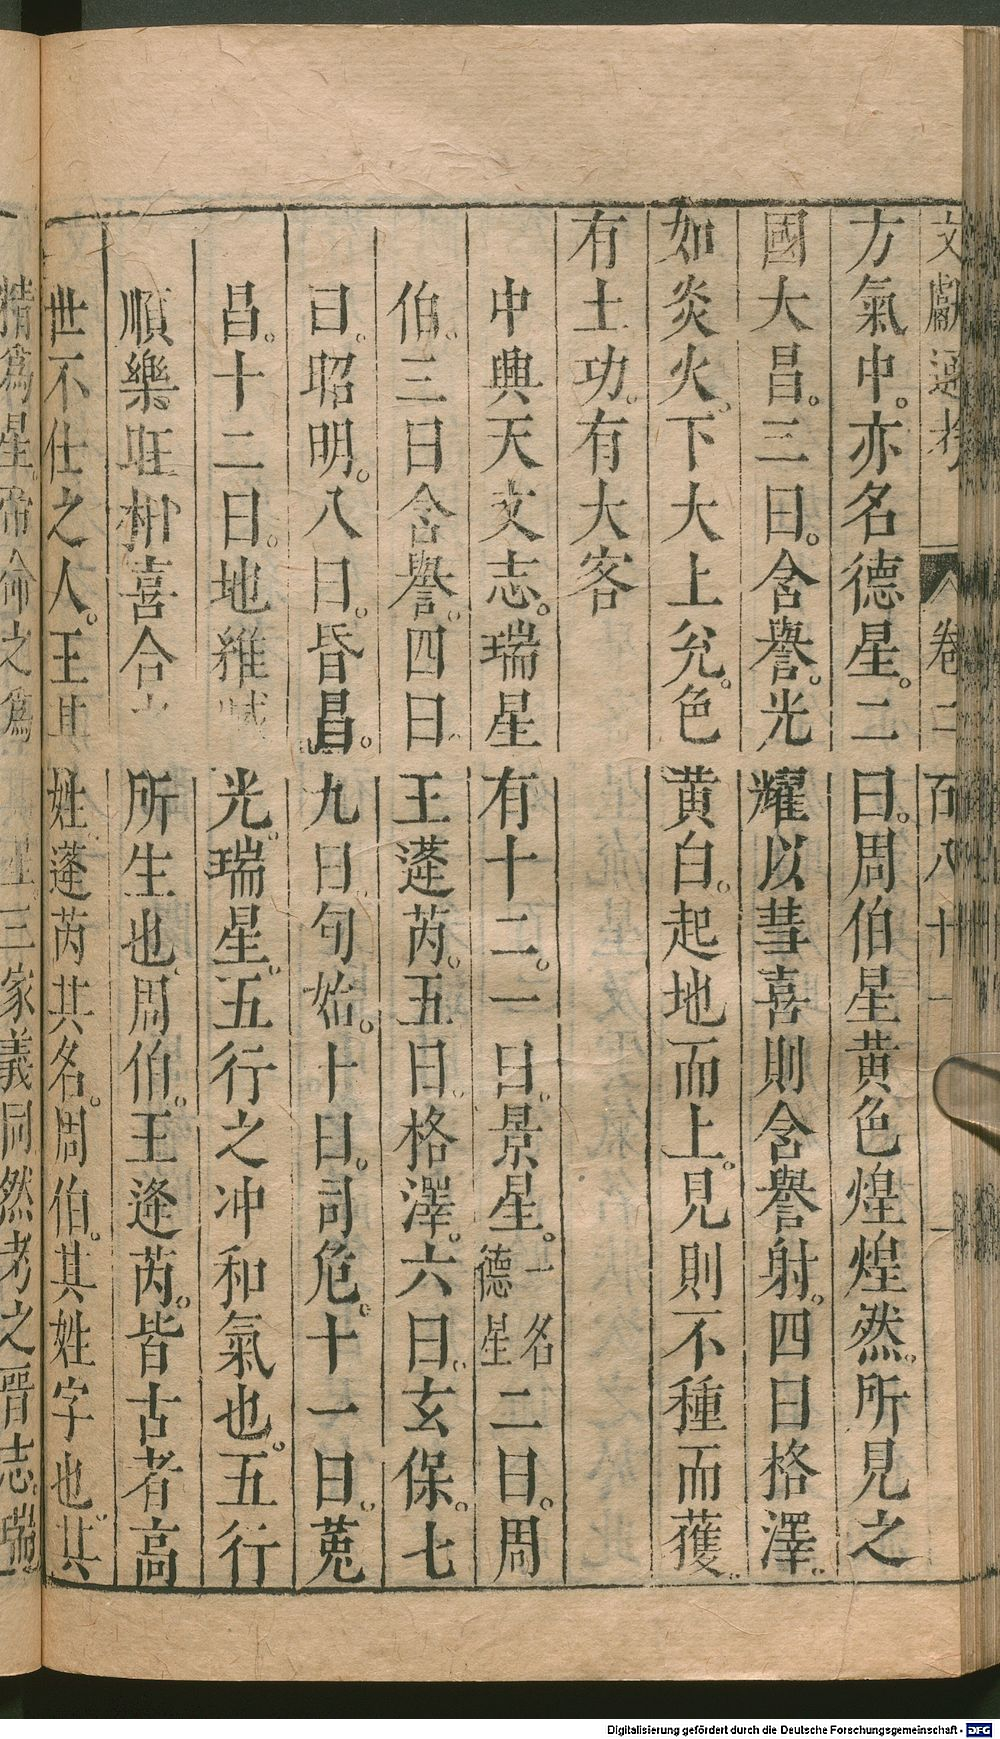 文獻通考 卷二百八十一 一
方氣中。亦名德星。二曰。周伯星黃色煌煌然。所見之
國大昌。三曰。含譽。光耀以彗喜則含譽射。四曰格澤。
如炎火。下大上兊。色黃白。起地而上。見則不種而獲。
有土功。有大客
中興天文志。瑞星有十二。一曰。景星。一名德星二曰。周
伯。三曰含譽。四曰王蓬芮。五曰。格澤。六曰。玄保。七
曰。昭明。八曰。昏昌。九曰。句始。十曰。司危。十一曰。菟
昌。十二曰。地維 光。瑞星。五行之冲和氣也。五行
順樂旺相喜合 所生也。周伯。王逢芮。皆古者高
世不仕之人。王其姓。蓬芮其名。周伯。其姓字也。其
精爲星 之爲 星三家義同然考之晋志瑞
Digitalisierung gefördert durch die Deutsche Forschungsgemeinschaft - DFG